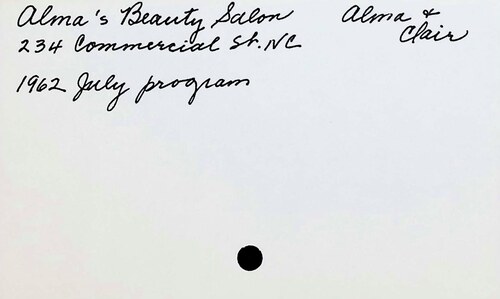 Alma's Beauty Salon
Alma &
Clair
234 Commercial St. NC
1962 July program